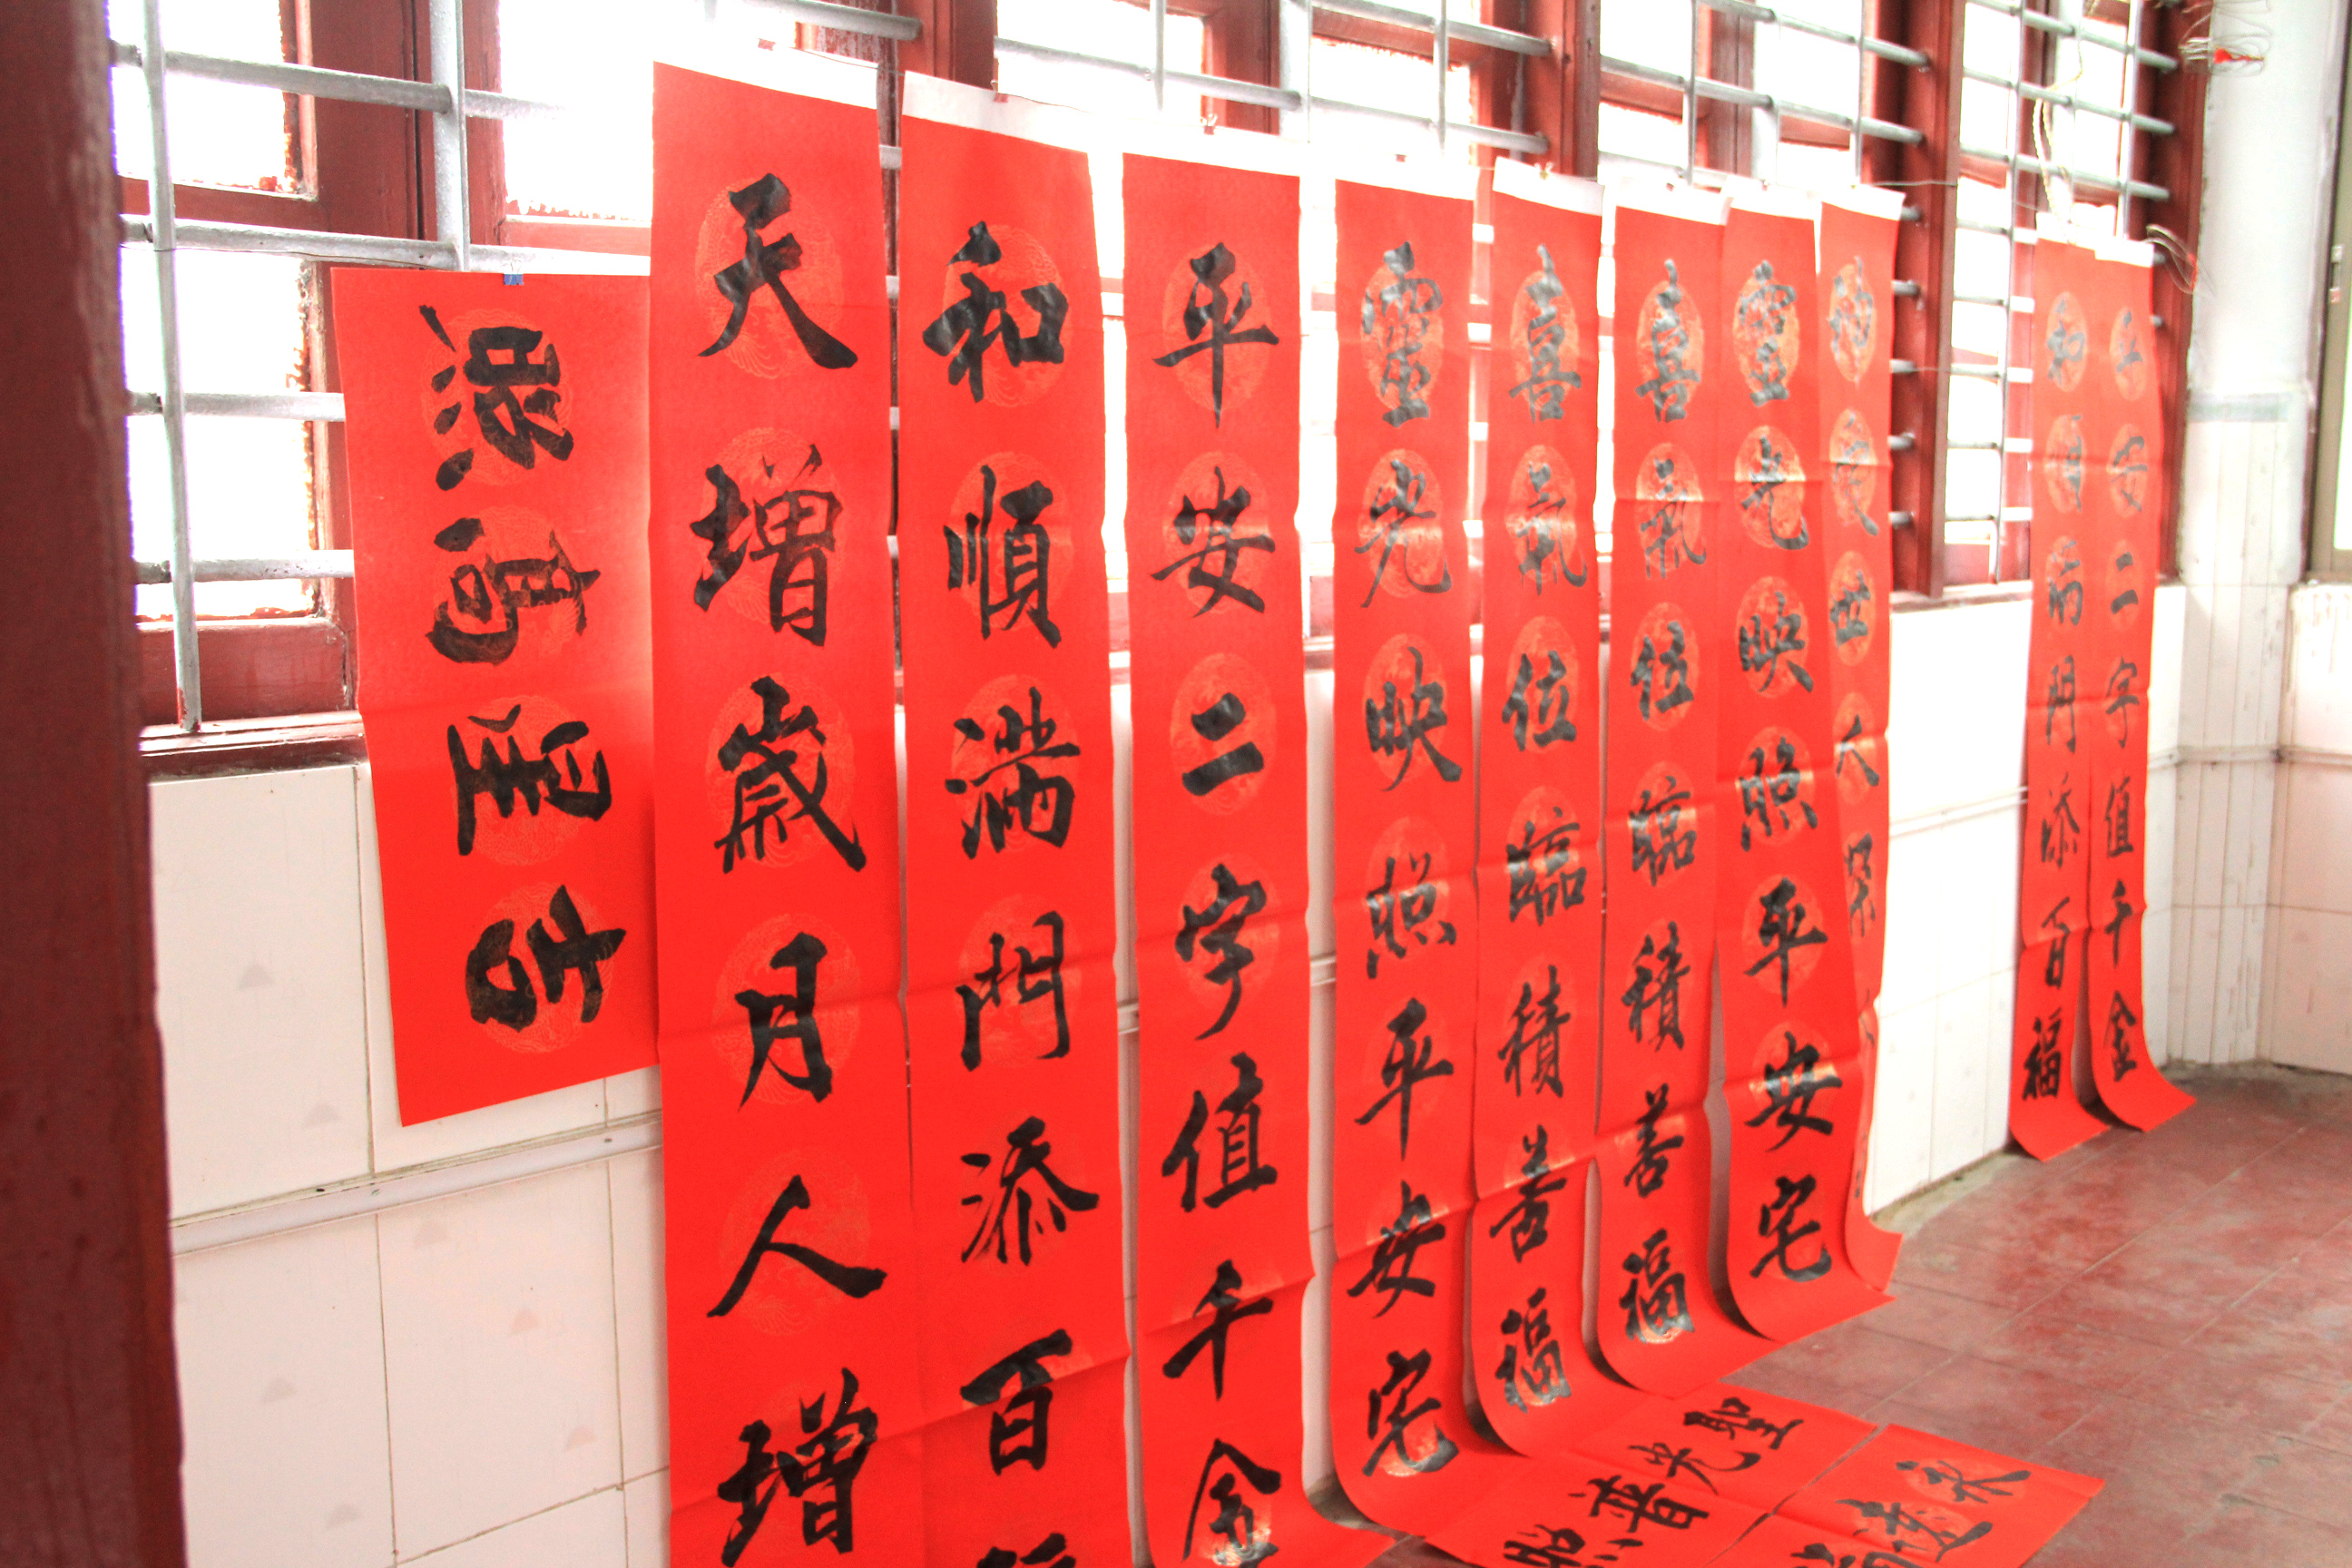 吉星高照
天增歲月人增
和順滿門添百
平安二字值千金
靈光映照平安宅
喜氣位臨積善福
喜氣位臨積善福
靈光映照平安宅
世人
和順滿門添百福
平安二字值千金
聖光普照
永遠